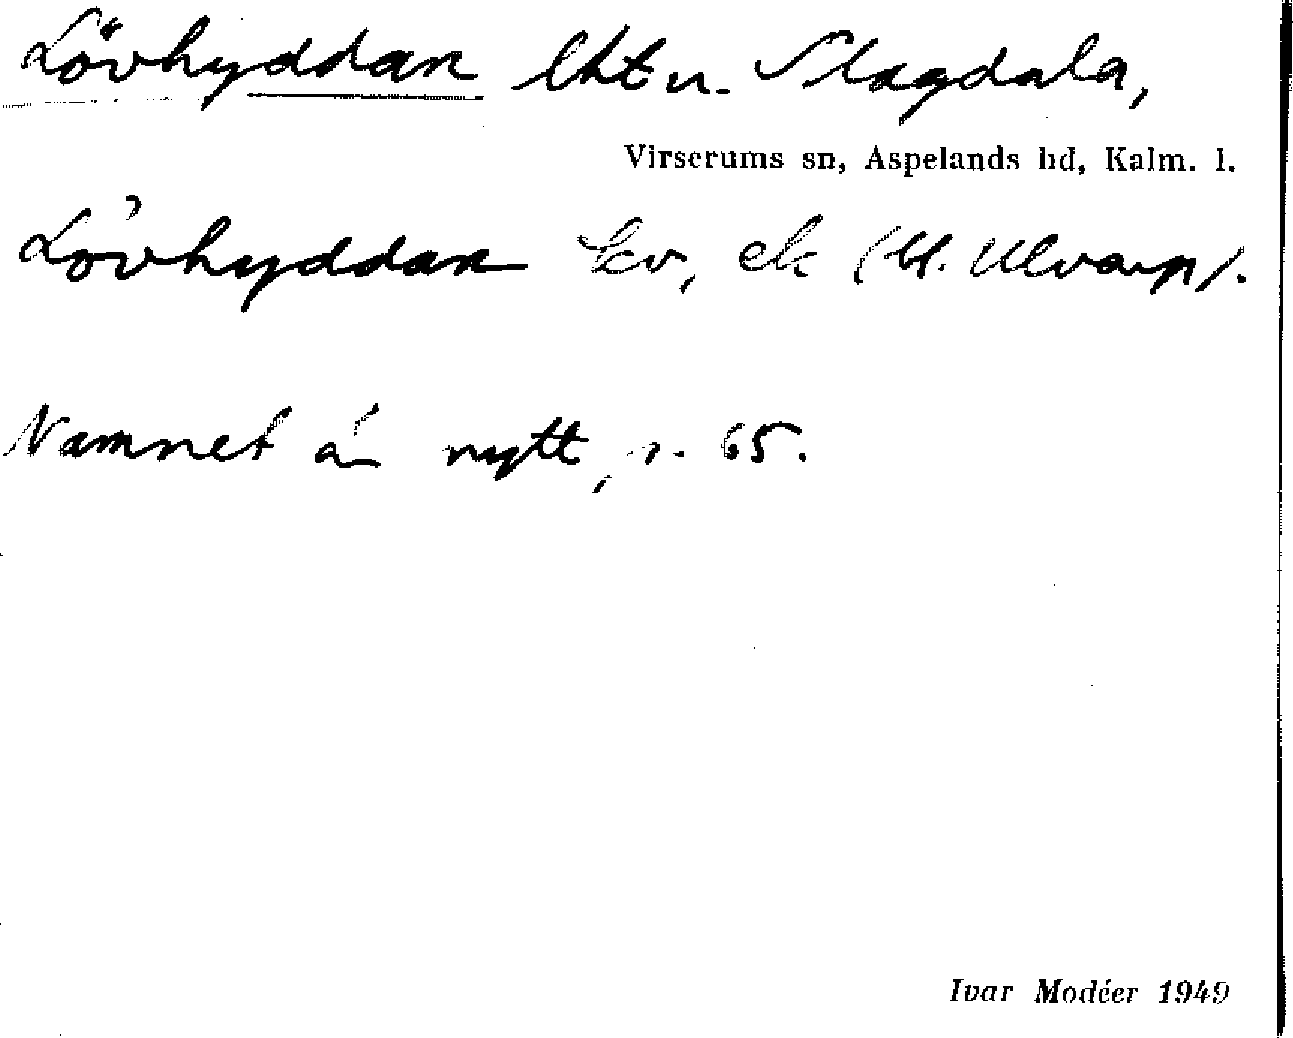 Lövhyddan lht u. Slagdala,
Virserums sn, Aspelands hd, Kalm. l.
Lövhyddan kv, ek (M. Ulvarp).
Namnet är nytt, s. 65.
Ivar Modéer 1949